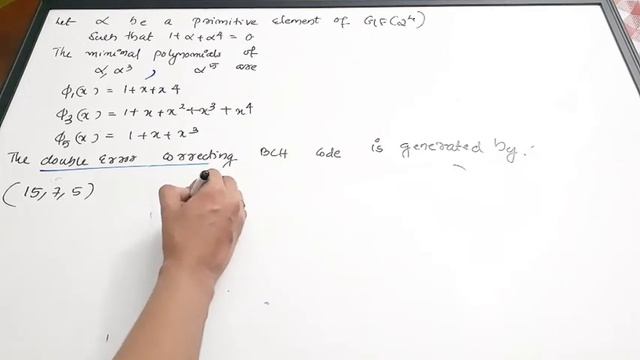 Let α be a primitive element of GF(2⁴)
Such that 1+α+α⁴=0
The minimal polynomials of
α, α³, α⁵ are
ϕ₁(x) = 1+x+x4
ϕ₃(x) = 1+x+x²+x³+x⁴
ϕ₅(x) = 1+x+x³
The double Error correcting BCH Code is generated by:
(15,7,5)